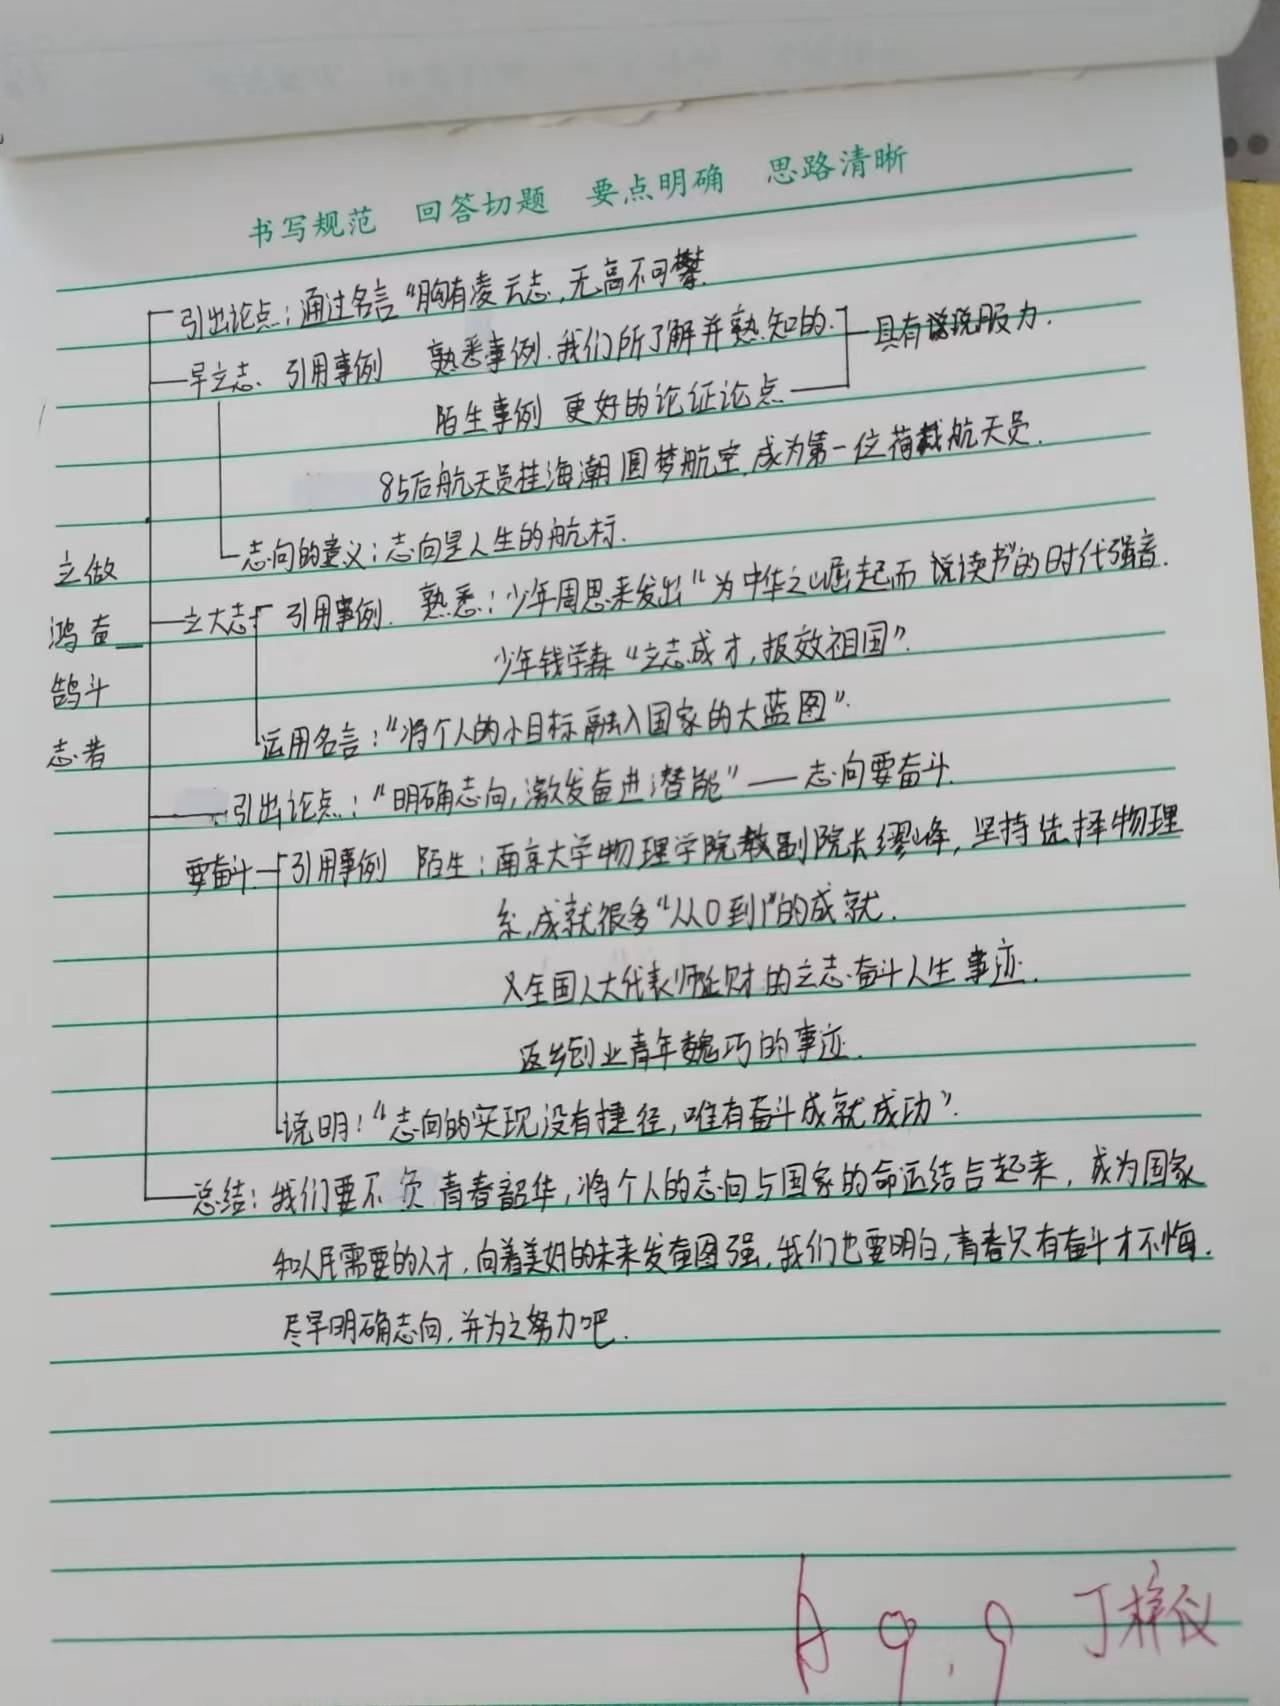 书写规范 回答切题 要点明确 思路清晰
引出论点：通过名言“胸有凌云志，无高不可攀.
早立志、引用事例 熟悉事例.我们所了解并熟知的. 具有说服力.
陌生事例 更好的论证论点
85后航天员桂海潮圆梦航空,成为第一位荷载航天员.
志向的意义：志向是人生的航标.
立做
鸿奋
鹄斗
志者
立大志 引用事例. 熟悉：少年周恩来发出“为中华之崛起而读书”的时代强音.
少年钱学森“立志成才,报效祖国”.
运用名言：“将个人的小目标融入国家的大蓝图”.
引出论点：“明确志向,激发奋进潜能”——志向要奋斗.
要奋斗 引用事例 陌生：南京大学物理学院教副院长缪峰，坚持选择物理
系,成就很多“从0到1”的成就.
又全国人大代表师延财的立志奋斗人生事迹.
返乡创业青年魏巧的事迹.
说明：“志向的实现没有捷径,唯有奋斗成就成功”.
总结：我们要不负青春韶华,将个人的志向与国家的命运结合起来，成为国家
和人民需要的人才,向着美好的未来发奋图强,我们也要明白,青春只有奋斗才不悔.
尽早明确志向,并为之努力吧.
A 9.9 丁梓仪